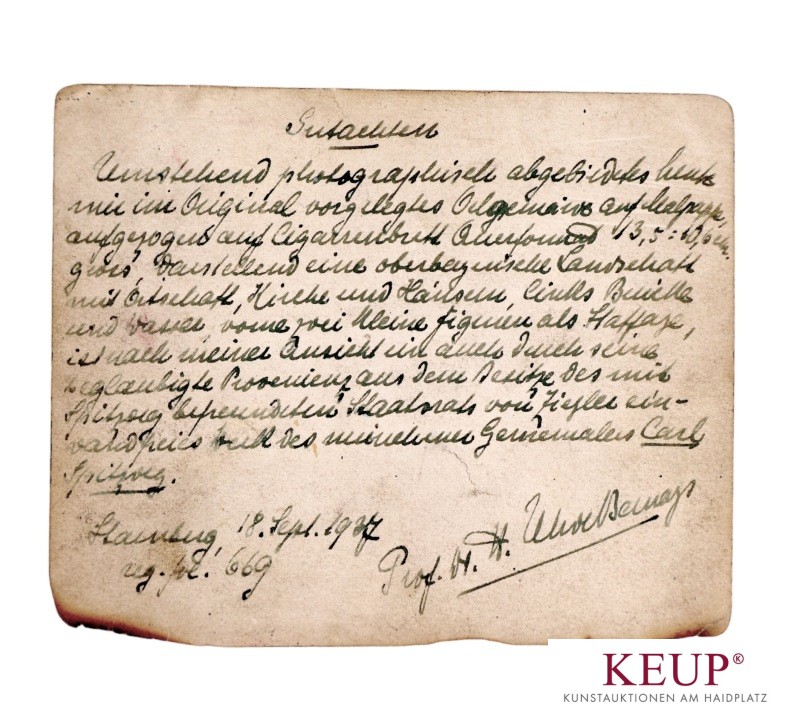 Gutachten
Umstehend photographisch abgebildetes heute
mir im Original vorgelegtes Oelgemälde auf Malpappe,
aufgezogen auf Cigarrenbrett Querformat 13,5:
gross, darstellend eine oberbayrische Landschaft
mit Ortschaft, Kirche und Häusern, links Brücke
und Wasser vorne zwei kleine Figuren als Staffage,
ist nach meiner Ansicht ein auch durch seine
beglaubigte Provenienz aus dem Besitze des mit
Spitzweg befreundeten Staatsrats von Ziegler ein-
wandfreies Werk des münchner Genremalers Carl
Spitzweg.
Starnberg, 18. Sept. 1937
reg. fol. 669
Prof. H. Uhde Bernays
KEUP®
KUNSTAUKTIONEN AM HAIDPLATZ